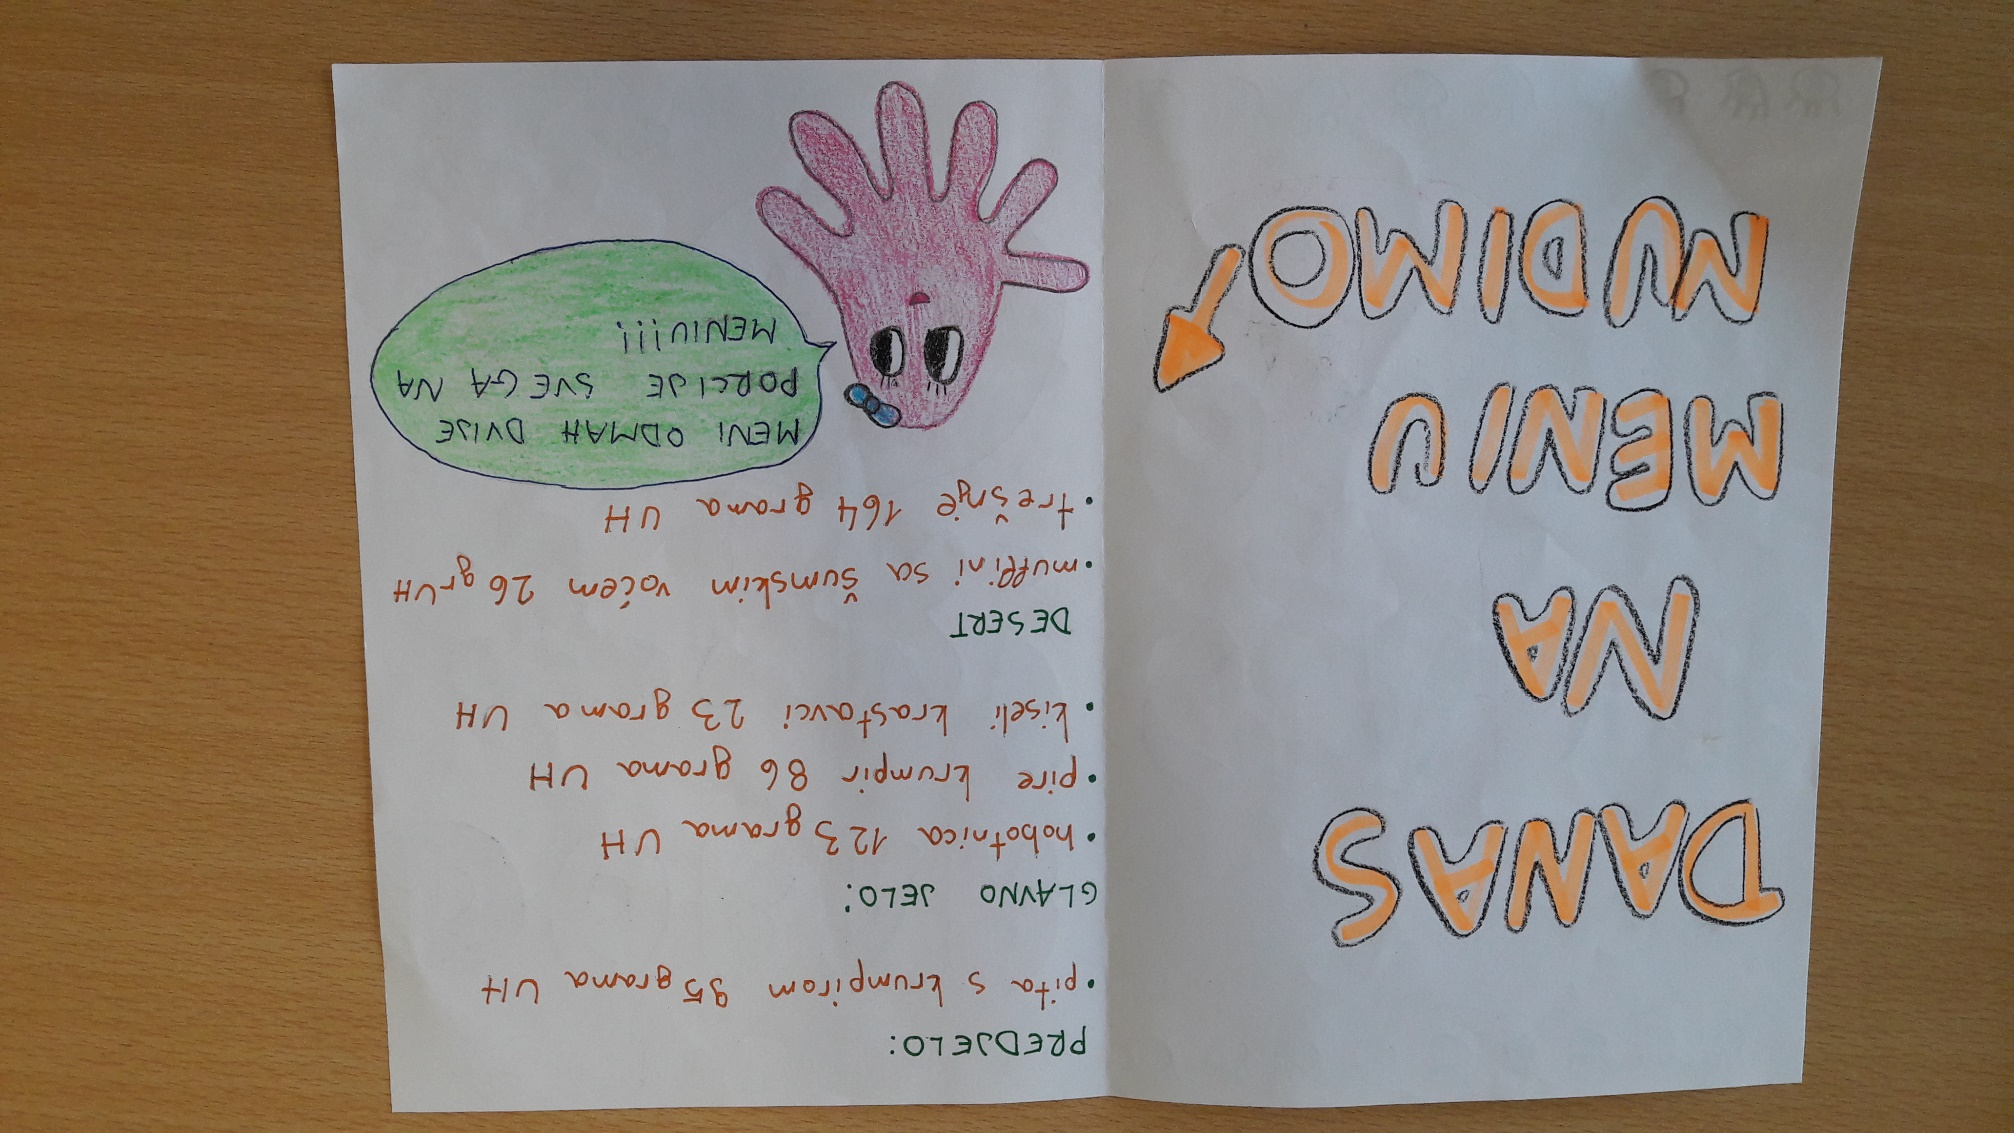 DANAS
NA
MENIU
NUDIMO
PREDJELO:
• pita s krumpirom 95 grama UH
GLAVNO JELO:
• hobotnica 123 grama UH
• pire krumpir 86 grama UH
• kiseli krastavci 23 grama UH
DESERT
• muffini sa šumskim voćem 26 gr UH
• trešnje 164 grama UH
MENI ODMAH DVIJE
PORCIJE SVEGA NA
MENIU!!!